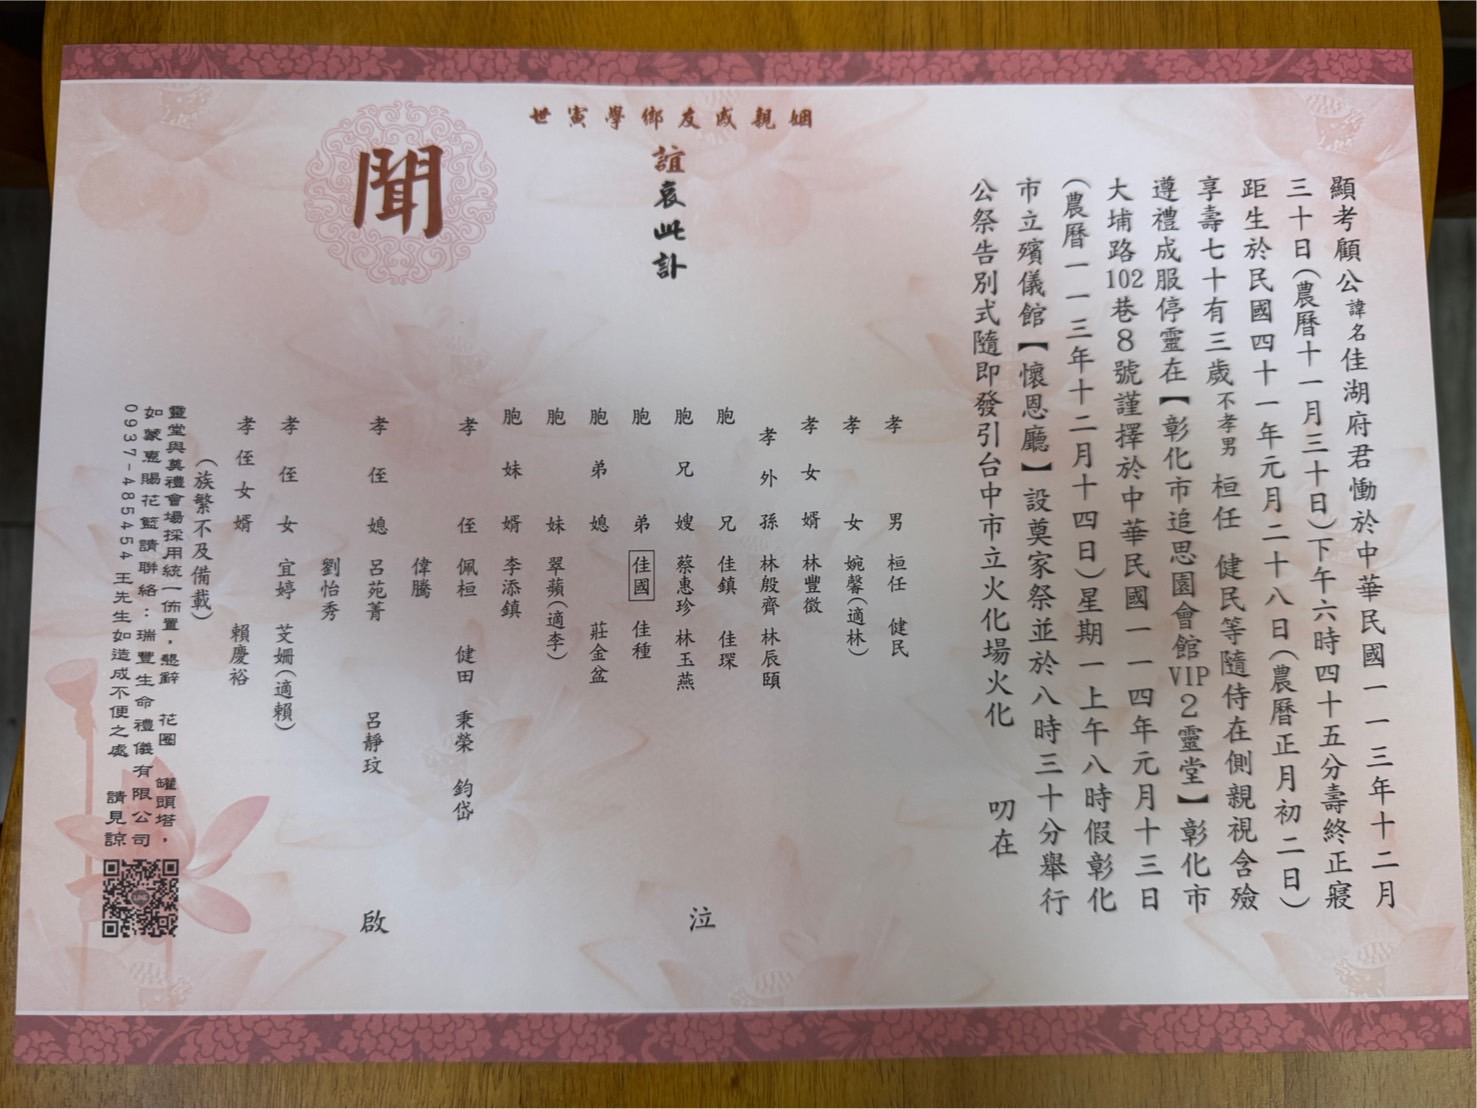 顯考顧公諱名佳湖府君慟於中華民國一一三年十二月
三十日(農曆十一月三十日)下午六時四十五分壽終正寢
距生於民國四十一年元月二十八日(農曆正月初二日)
享壽七十有三歲不孝男 桓任 健民等隨侍在側親視含殮
遵禮成服停靈在【彰化市追思園會館VIP2靈堂】彰化市
大埔路102巷8號謹擇於中華民國一一四年元月十三日
(農曆一一三年十二月十四日)星期一上午八時假彰化
市立殯儀館【懷恩廳】設奠家祭並於八時三十分舉行
公祭告別式隨即發引台中市立火化場火化 叨在
姻親戚友鄉學寅世
誼哀此訃
聞
孝男 桓任 健民
孝女 婉馨(適林)
孝女婿 林豐徵
孝外孫 林殷齊 林辰頤
胞兄 佳鎮 佳琛
胞兄嫂 蔡惠珍 林玉燕
胞弟 佳國 佳種
胞弟媳 莊金盆
胞妹 翠蘋(適李)
胞妹婿 李添鎮
孝侄 佩桓 健田 秉榮 鈞岱
偉騰
孝侄媳 呂苑菁 呂靜玟
劉怡秀
孝侄女 宜婷 芠姍(適賴)
孝侄女婿 賴慶裕
泣
啟
(族繁不及備載)
靈堂與奠禮會場採用統一佈置，懇辭 花圈 罐頭塔，
如蒙惠賜花籃請聯絡：瑞豐生命禮儀有限公司
0937-485454 王先生如造成不便之處 請見諒